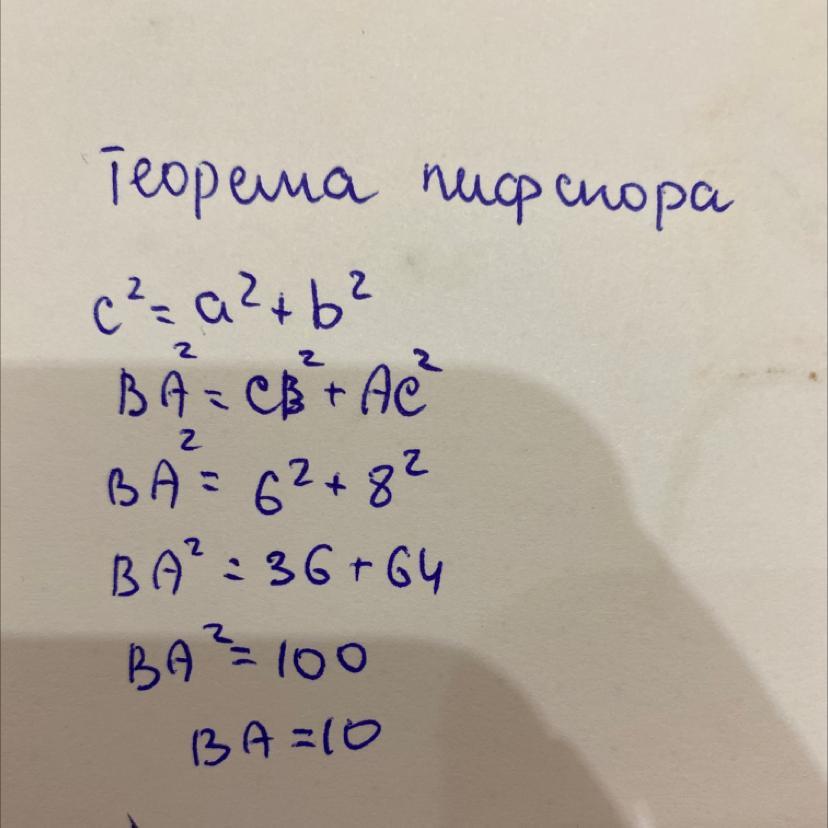 Теорема пифагора
c² = a² + b²
BA² = CB² + AC²
BA² = 6² + 8²
BA² = 36 + 64
BA² = 100
BA = 10